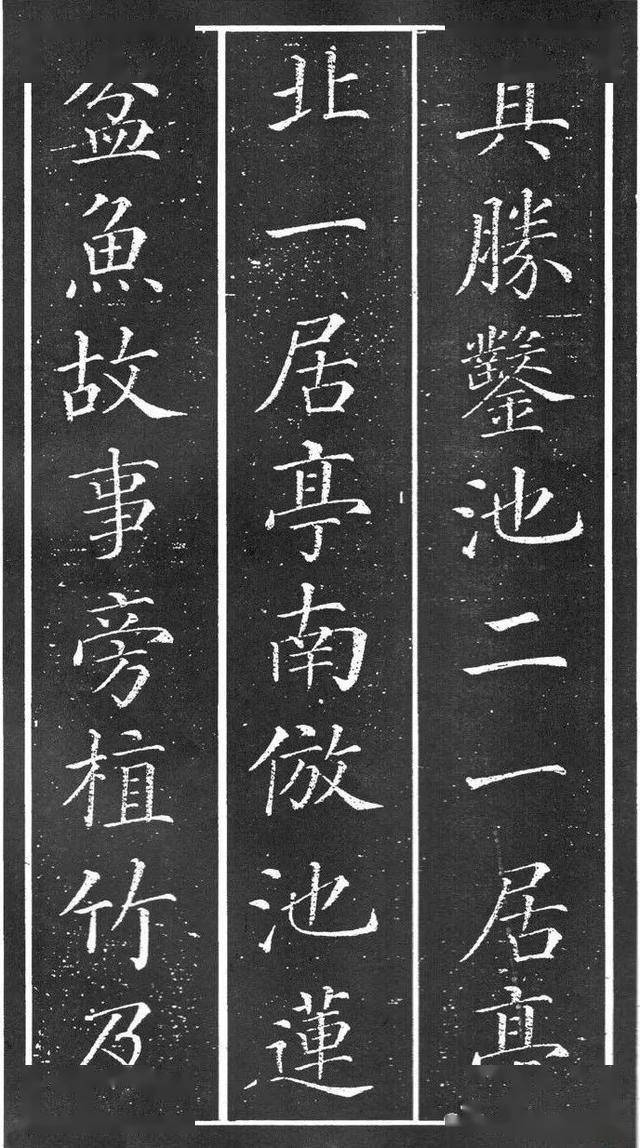 具勝鑿池二一居亭
北一居亭南倣池蓮
盆魚故事旁植竹乃